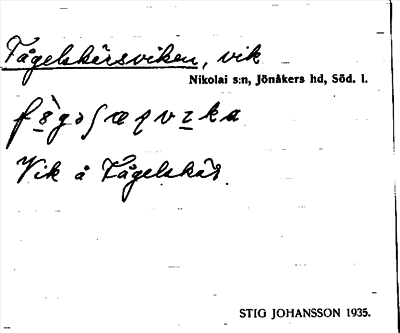 Fågelskärsviken, vik
Nikolai s:n, Jönåkers hd, Söd. l.
Vik å Fågelskär.
STIG JOHANSSON 1935.